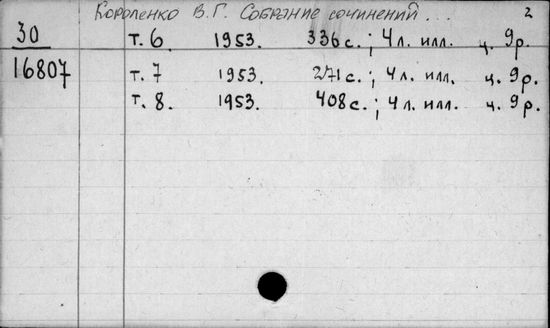 Короленко В.Г. Собрание сочинений... 2
30
16807
т. 6. 1953. 336 с.; 4 л. илл. ц. 9 р.
т. 7 1953. 271 с.; 4 л. илл. ц. 9 р.
т. 8. 1953. 408 с.; 4 л. илл. ц. 9 р.